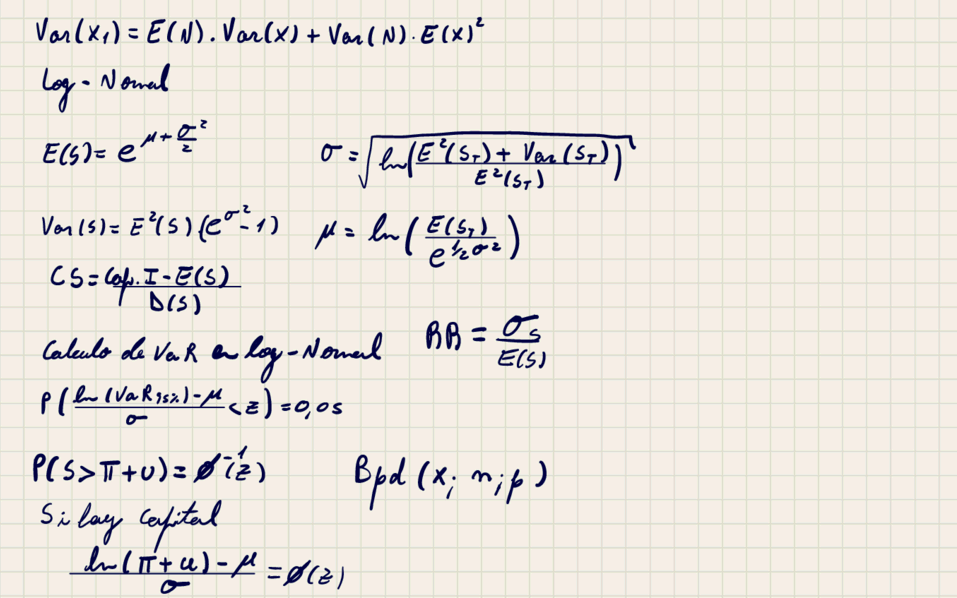 Var(X₁) = E(N) . Var(X) + Var(N) . E(X)²
Log - Normal
E(S) = e^(μ + σ²/2)
σ = √(ln((E²(S_T) + Var(S_T)) / E²(S_T)))
Var(S) = E²(S) (e^(σ²) - 1)
μ = ln(E(S_T) / e^(½σ²))
CS = (Cap. I - E(S)) / D(S)
BB = σ_S / E(S)
Calculo de VaR en log-Normal
P((ln(VaR₉₅%) - μ) / σ < z) = 0,05
P(S > π + u) = ϕ⁻¹(z)
Bpd (x; n; p)
Si hay capital
(ln(π + u) - μ) / σ = ϕ(z)